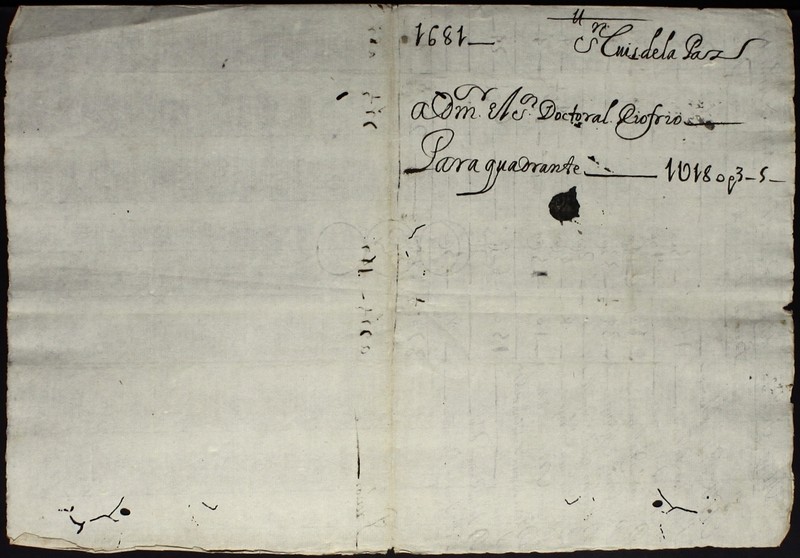 1681
Sr. Luis de la Paz
adm.r el Sr. Doctoral Riofrio
Para quadrante 10180p3-5-